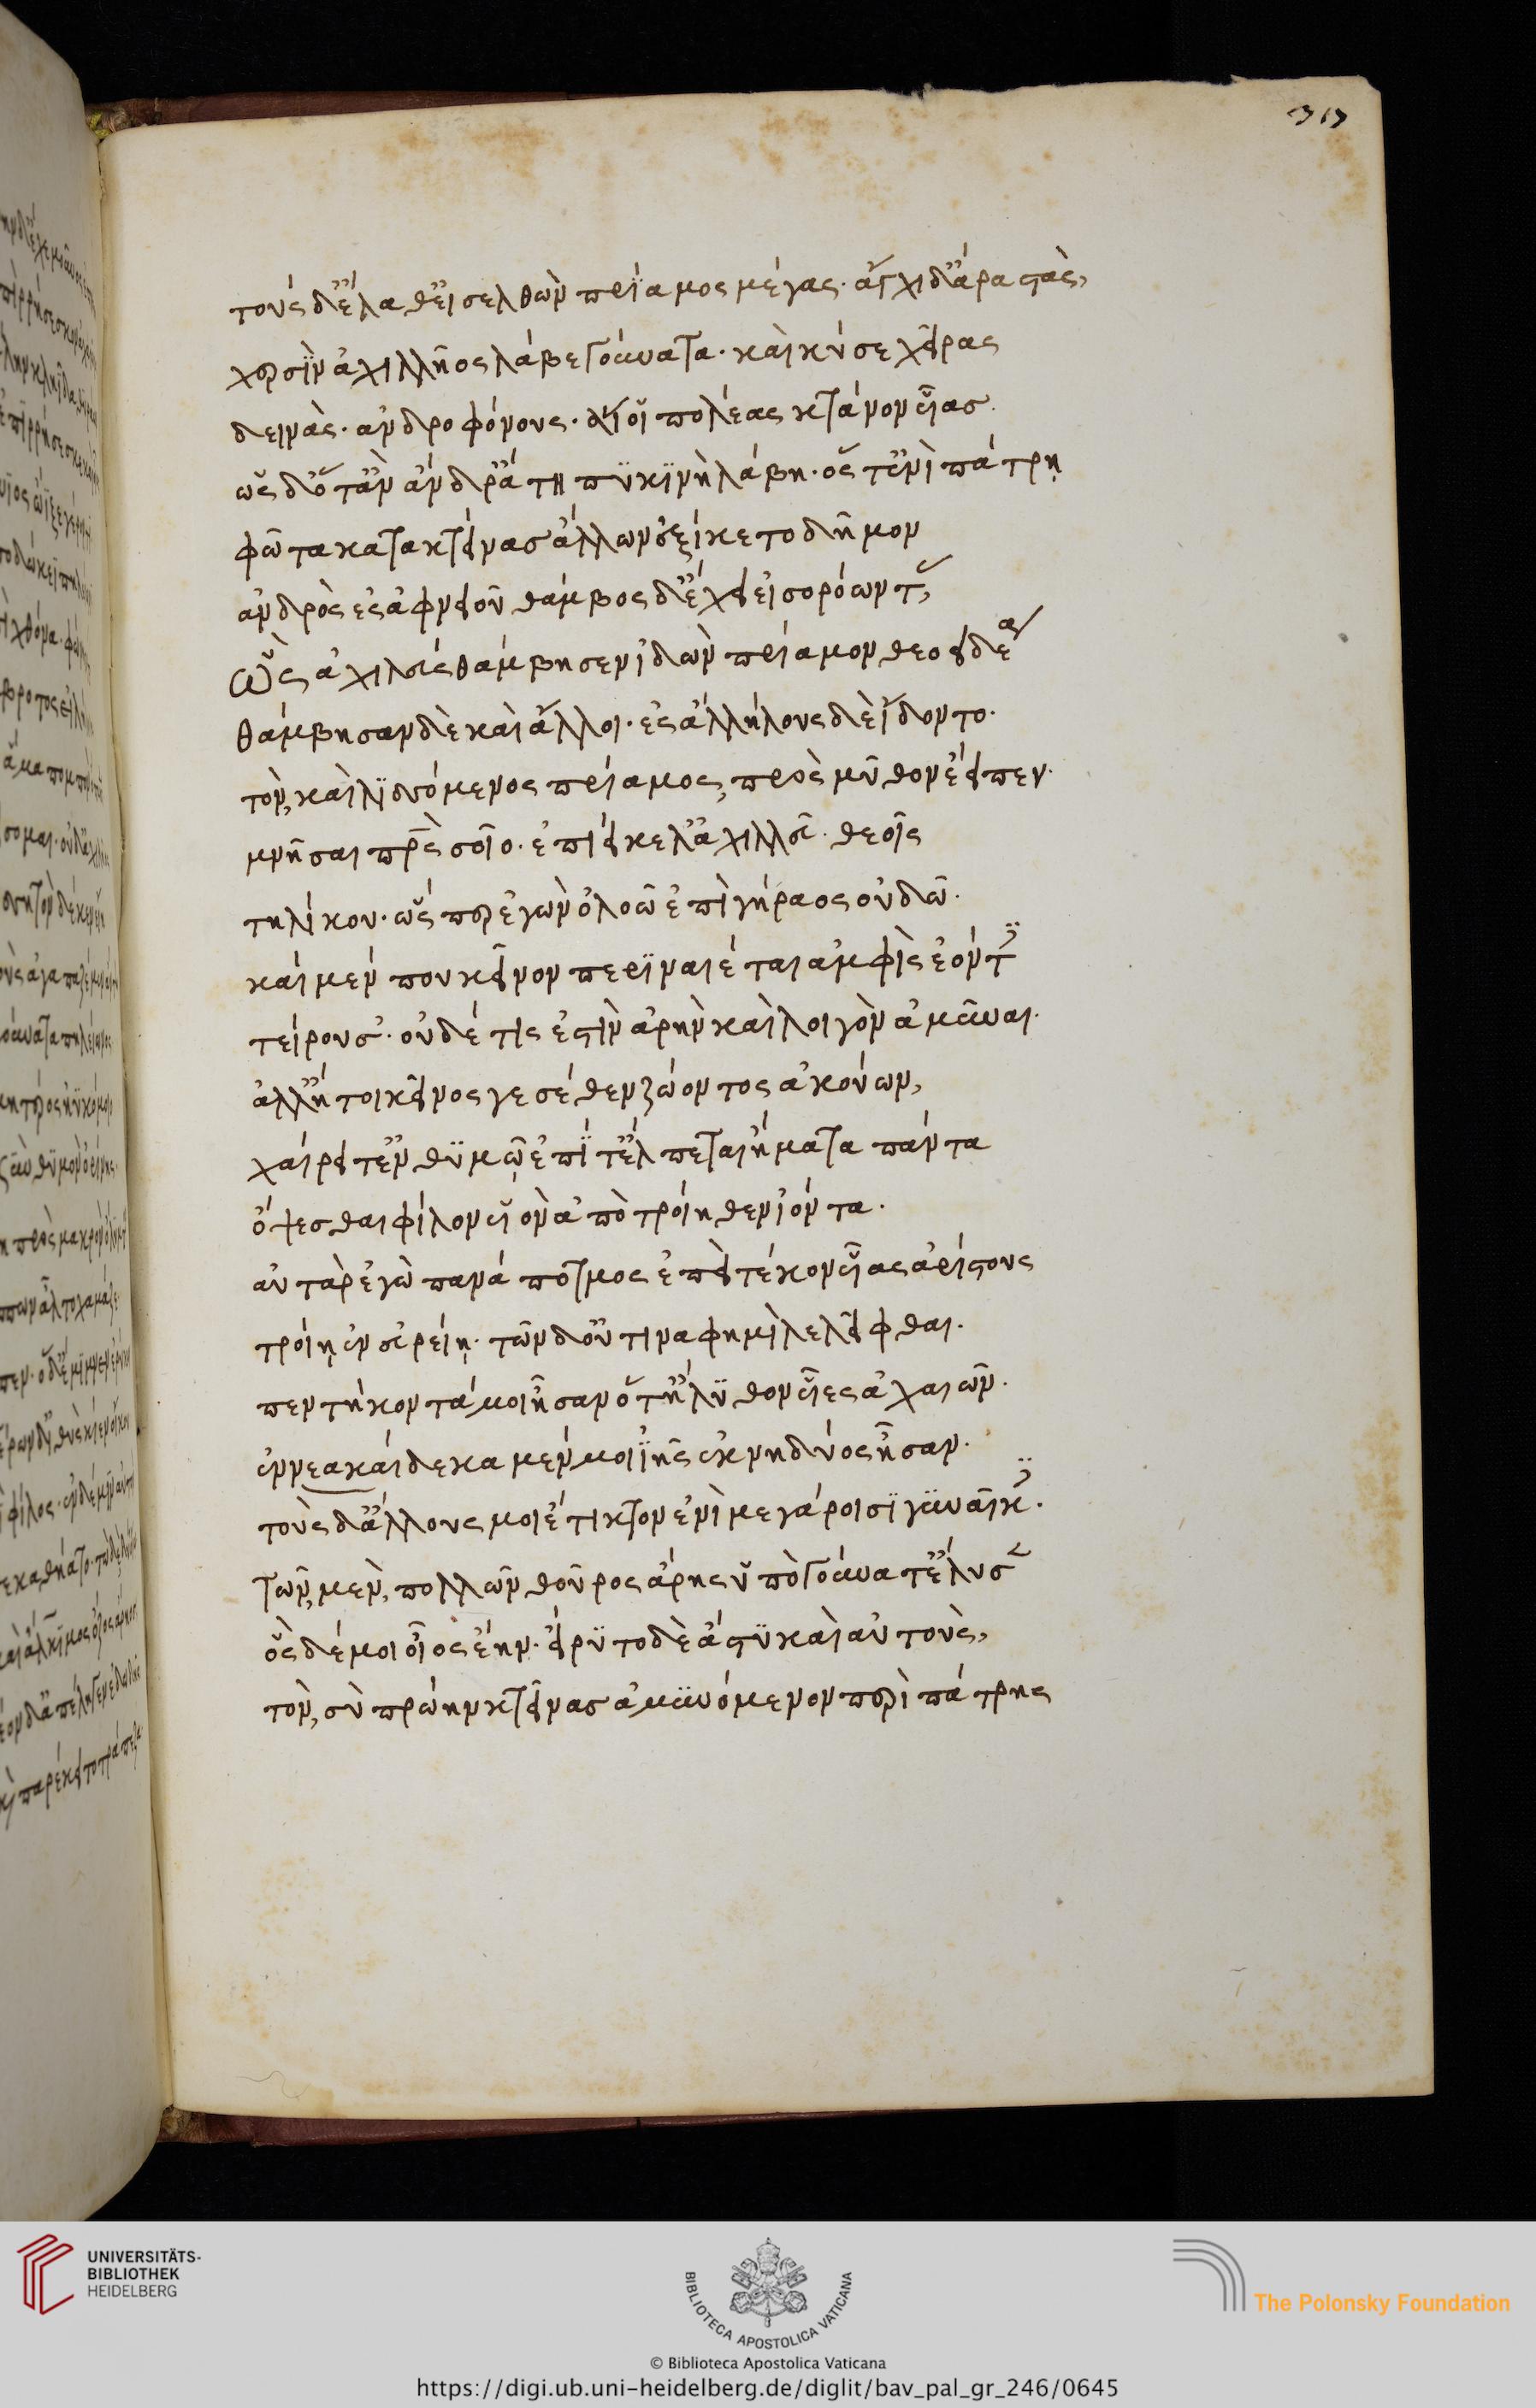 313
τοὺς δ' ἔλαθ' εἰσελθὼν πρίαμος μέγας. ἄγχι δ' ἄρα στὰς,
χερσὶν ἀχιλλῆος λάβε γούνατα. καὶ κύσε χεῖρας
δεινὰς. ἀνδροφόνους. αἵ οἱ πολέας κτάνον υἷας.
ὡς δ' ὅτ' ἂν ἄνδρ' ἄτη πυκινὴ λάβη. ὅς τ' ἐνὶ πάτρῃ
φῶτα κατακτείνας ἄλλων ἐξίκετο δῆμον
ἀνδρὸς ἐς ἀφνειοῦ θάμβος δ' ἔχει εἰσορόωντας,
ὣς ἀχιλεὺς θάμβησεν ἰδὼν πρίαμον θεοειδέα
θάμβησαν δὲ καὶ ἄλλοι. ἐς ἀλλήλους δὲ ἴδοντο.
τὸν, καὶ λισσόμενος πρίαμος, πρὸς μῦθον ἔειπεν.
μνῆσαι πρὸς σοῖο. ἐπιείκελ' ἀχιλλεῦ. θεοῖς
τηλίκου. ὥς περ ἐγὼν ὀλοῶ ἐπὶ γήραος οὐδῶ.
καὶ μέν που κεῖνον περιναιέται ἀμφὶς ἐόντες
τείρουσ'. οὐδέ τις ἐστὶν ἀρὴν καὶ λοιγὸν ἀμῦναι.
ἀλλ' ἤτοι κεῖνος γε σέθεν ζώοντος ἀκούων,
χαίρει τ' ἐν θυμῷ ἐπί τ' ἔλπεται ἤματα πάντα
ὄψεσθαι φίλον υἱὸν ἀπὸ τροίηθεν ἰόντα.
αὐτὰρ ἐγὼ πανάποτμος ἐπεὶ τέκον υἷας ἀρίστους
τροίῃ ἐν εὐρείῃ. τῶν δ' οὔτινα φημὶ λελεῖφθαι.
πεντήκοντά μοι ἦσαν ὅτ' ἤλυθον υἷες ἀχαιῶν.
ἐννεακαίδεκα μέν μοι ἰῆς ἐκ νηδύος ἦσαν.
τοὺς δ' ἄλλους μοι ἔτικτον ἐνὶ μεγάροισι γυναῖκες.
τῶν, μὲν, πολλῶν θοῦρος ἄρης ὑπὸ γούνατ' ἔλυσεν
ὃς δέ μοι οἶος ἔην. εἴρυτο δὲ ἄστυ καὶ αὐτοὺς,
τὸν, σὺ πρώην κτεῖνας ἀμυνόμενον περὶ πάτρης
UNIVERSITÄTS-
BIBLIOTHEK
HEIDELBERG
BIBLIOTECA APOSTOLICA VATICANA
© Biblioteca Apostolica Vaticana
The Polonsky Foundation
https://digi.ub.uni-heidelberg.de/diglit/bav_pal_gr_246/0645